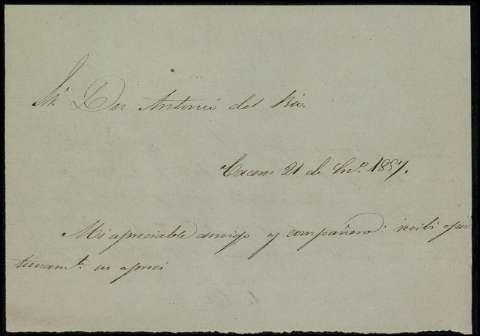 Sr. Don Antonio del Rio.
21 de En.º 1857.
Mi apreciable amigo y compañero: recibi opor
tunam.te su apreci